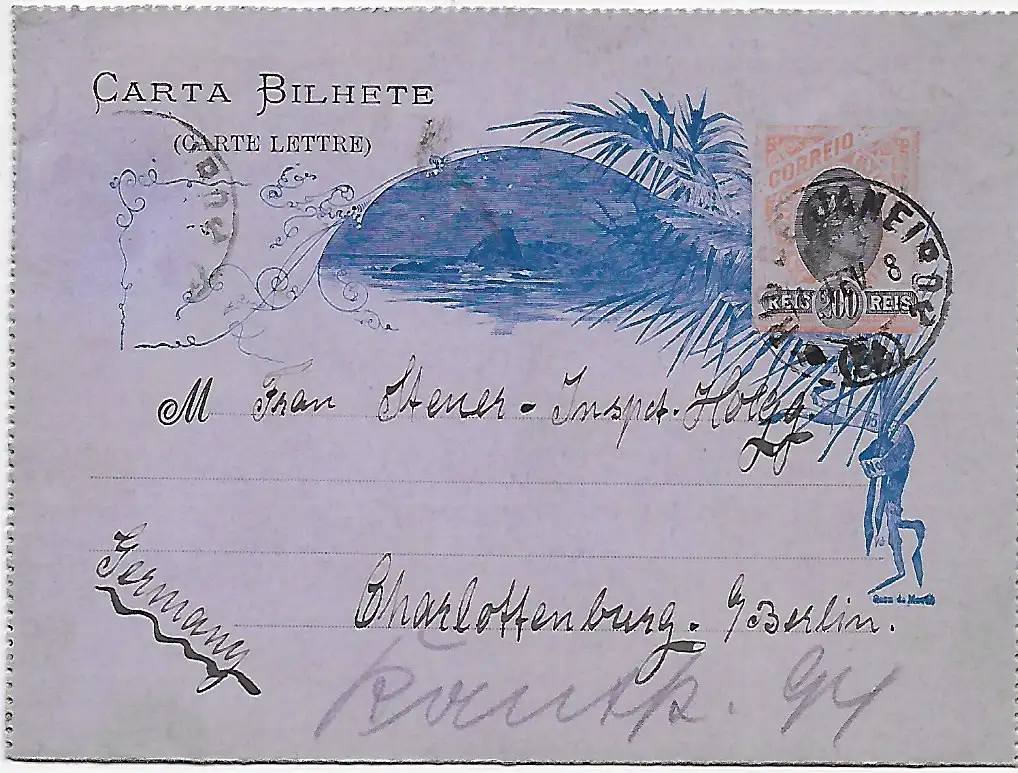 CARTA BILHETE
(CARTE LETTRE)
CORREIO
REIS 200 REIS
JANEIRO
8
M Frau Steuer-Inspct. Holtzg.
Germany
Charlottenburg. b/Berlin.
Kantstr. 94
Casa da Moeda